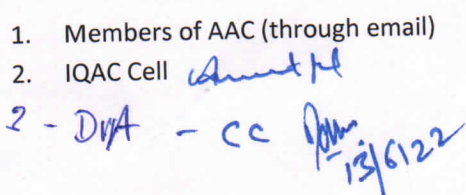 1. Members of AAC (through email)
2. IQAC Cell
3 - DyA - CC
13/6/22